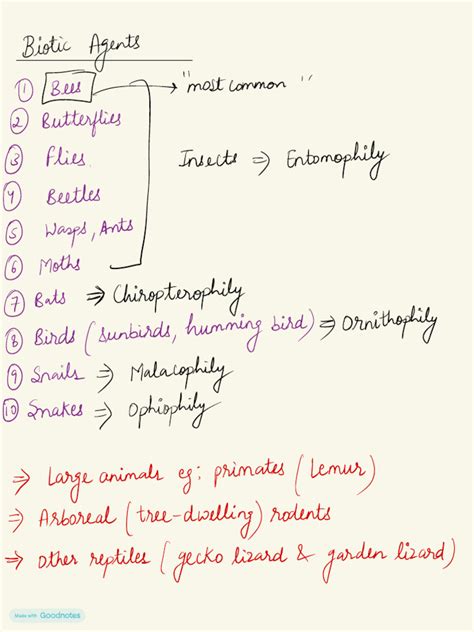 Biotic Agents
① Bees → "most common"
② Butterflies
③ Flies.
Insects ⇒ Entomophily
④ Beetles
⑤ Wasps, Ants
⑥ Moths
⑦ Bats ⇒ Chiropterophily
⑧ Birds (sunbirds, humming bird) ⇒ Ornithophily
⑨ Snails ⇒ Malacophily
⑩ Snakes ⇒ Ophiophily
⇒ Large animals eg: primates (Lemur)
⇒ Arboreal (tree-dwelling) rodents
⇒ Other reptiles (gecko lizard & garden lizard)
Made with Goodnotes